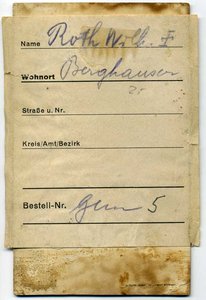 Name Roth Wilh. I
Wohnort Berghausen
Straße u. Nr.
Kreis/Amt/Bezirk
Bestell-Nr. 5